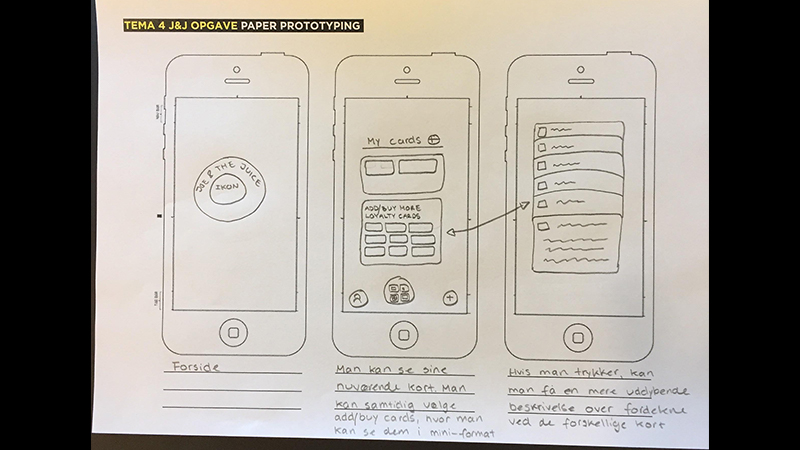 TEMA 4 J&J OPGAVE PAPER PROTOTYPING
JOE & THE JUICE
IKON
Forside
My cards
ADD/BUY MORE
LOYALTY CARDS
Man kan se sine
nuværende kort. Man
kan samtidig vælge
add/buy cards, hvor man
kan se dem i mini-format
Hvis man trykker, kan
man få en mere uddybende
beskrivelse over fordelene
ved de forskellige kort